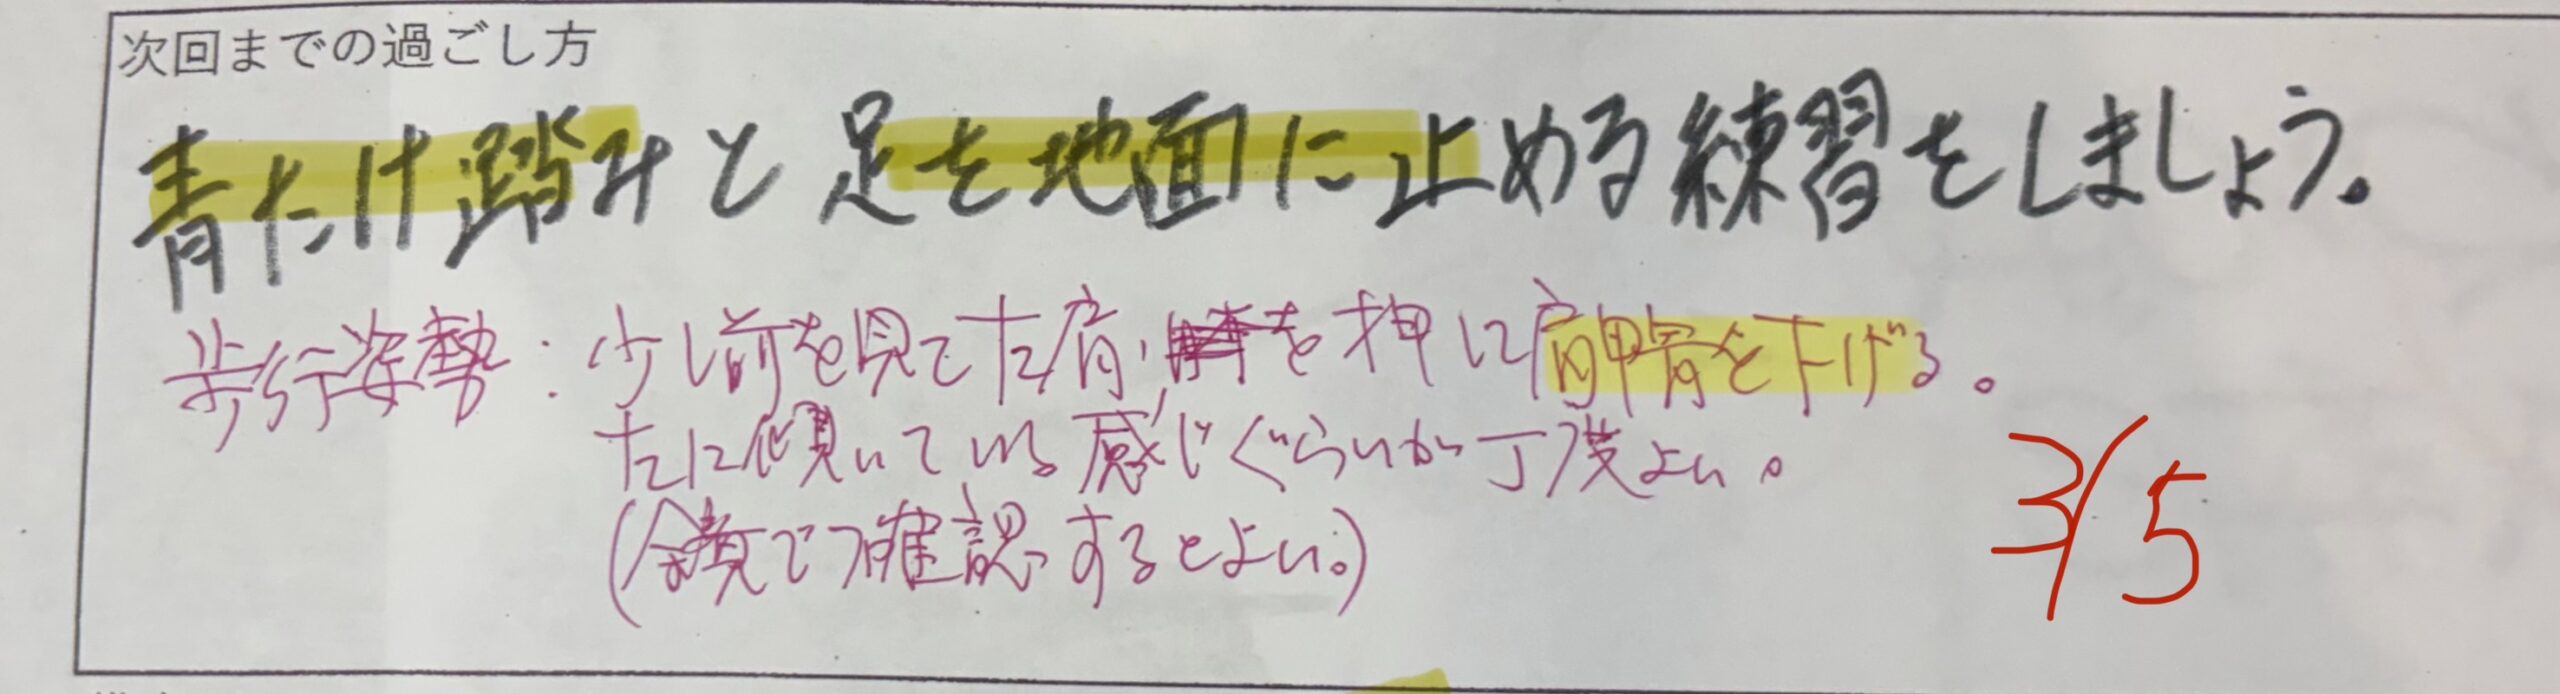 次回までの過ごし方
青たけ踏みと足を地面に止める練習をしましょう。
歩行姿勢：少し前を見て左肩、を押し肩甲骨を下げる。
左に傾いている感じぐらいが丁度よい。
(鏡で確認するとよい。)
3/5